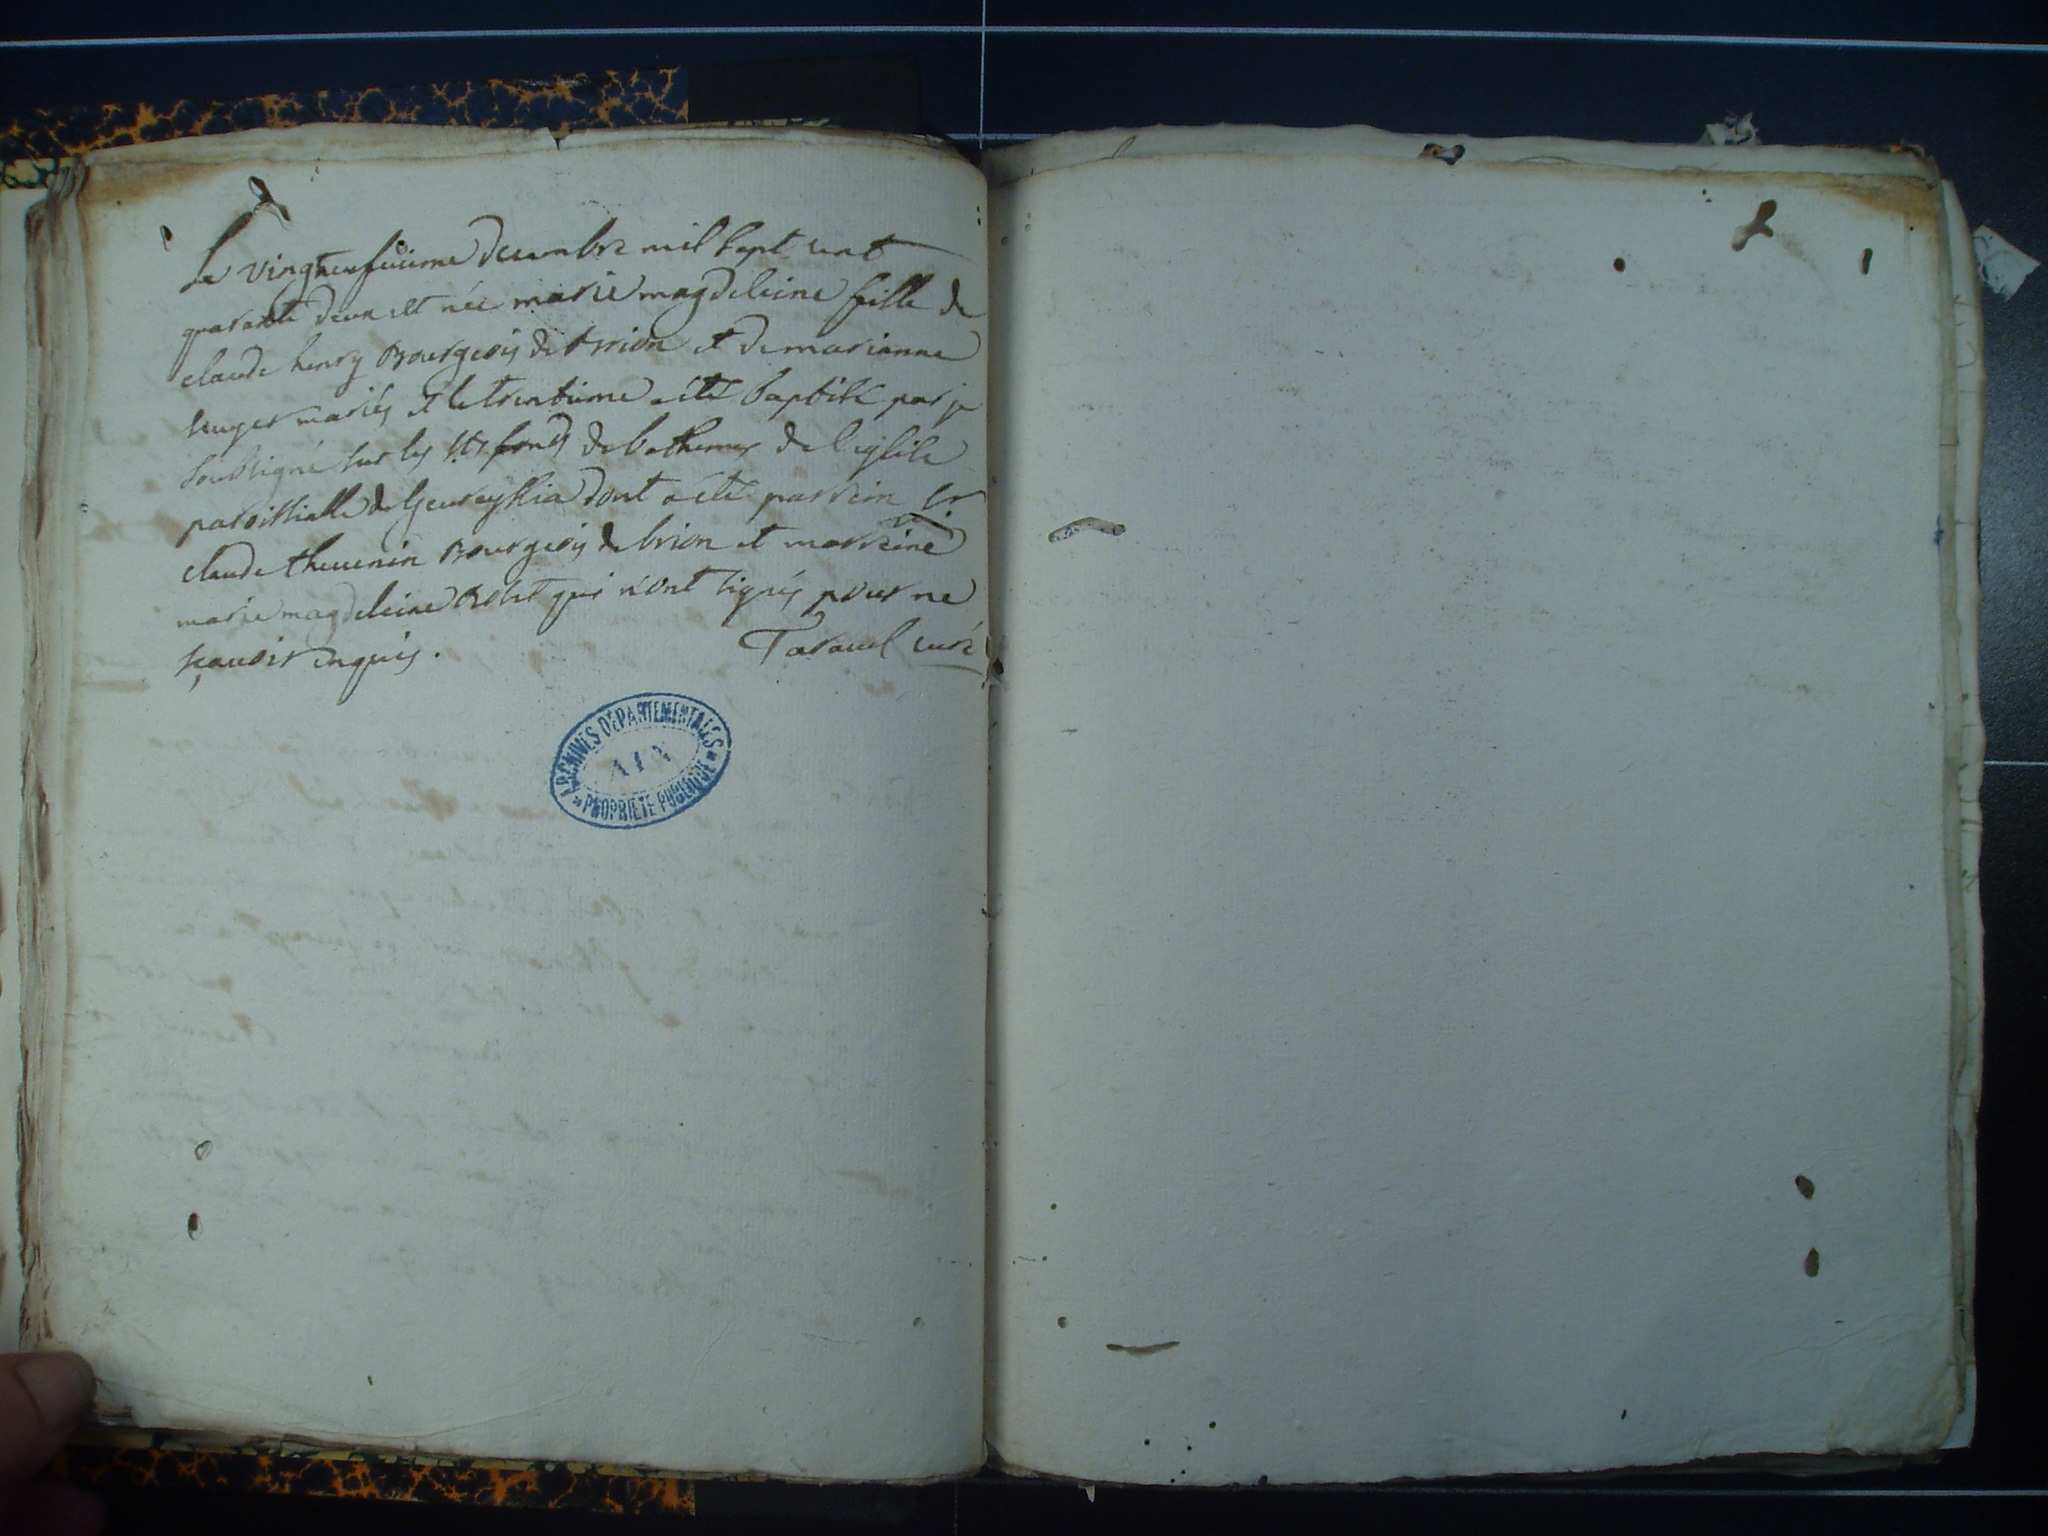 Le vingtneufvieme decembre mil sept cent
quarante deux est née marie magdeleine fille de
claude henry Bourgeois de brion et de marianne
suger mariés et le trentieme a été baptisé par je
soubsigné sur les sts fonds de bathemes de l'eglise
paroissialle de Geureyssia dont a été parrein sr
claude thevenin Bourgeois de brion et marreine
marie magdeleine qui n'ont signés pour ne
sçavoir enquis.
Taravel curé
ARCHIVES DÉPARTEMENTALES
AIN
PROPRIÉTÉ PUBLIQUE